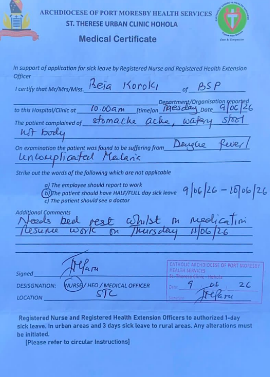 ARCHDIOCESE OF PORT MORESBY HEALTH SERVICES
ST. THERESE URBAN CLINIC HOHOLA
Medical Certificate
In support of application for sick leave by Registered Nurse and Registered Health Extension
Officer
I certify that Mr/Mrs/Miss Reia Koroki of BSP
Department/Organisation reported
to this Hospital/Clinic at 10:00am (time) on Tuesday Date 9/06/26
The patient complained of stomache ache, watery stool
hot body
On examination the patient was found to be suffering from Dengue fever/
Uncomplicated Malaria
Strike out the words of the following which are not applicable
a) The employee should report to work
b) The patient should have HALF/FULL day sick leave 9/06/26 – 10/06/26
c) The patient should see a doctor
Additional Comments
Needs bed rest whilst on medication
Resume work on Thursday 11/06/26
Signed
DESIGNATION: NURSE / HEO / MEDICAL OFFICER
LOCATION STC
CATHOLIC ARCHDIOCESE OF PORT MORESBY
HEALTH SERVICES
9 26
Registered Nurse and Registered Health Extension Officers to authorized 1-day
sick leave. In urban areas and 3 days sick leave to rural areas. Any alterations must
be initiated.
[Please refer to circular Instructions]